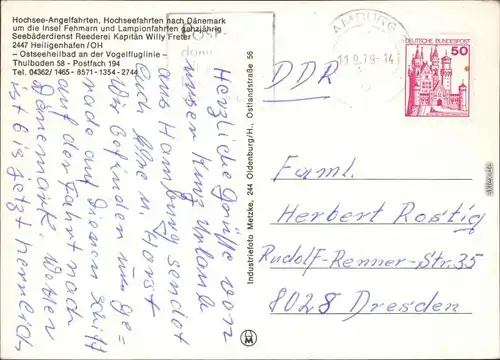 Hochsee-Angelfahrten, Hochseefahrten nach Dänemark
um die Insel Fehmarn und Lampionfahrten ganzjährig
Seebäderdienst Reederei Kapitän Willy Freter
2447 Heiligenhafen/OH
– Ostseeheilbad an der Vogelfluglinie –
Thulboden 58 - Postfach 194
Tel. 04362/1465 - 8571 - 1354 - 2744
Herzliche Grüße von
unsern Kurz Urlaub
aus Hamburg sendet
Euch Ilse u. Horst
Wir befinden uns ge=
rade auf diesem Schiff
auf der Fahrt nach
Dänemark. Wetter
ist bis jetzt herrlich
Industriefoto Metzke, 244 Oldenburg/H., Ostlandstraße 56
HAMBURG
11.9.79-14
DEUTSCHE BUNDESPOST
50
DDR
Faml.
Herbert Rostig
Rudolf-Renner-Str. 35
8028 Dresden